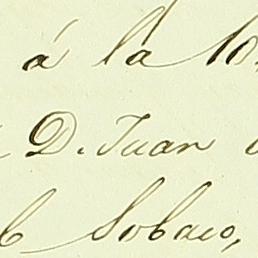 á la 10
D. Juan
Sobaco,